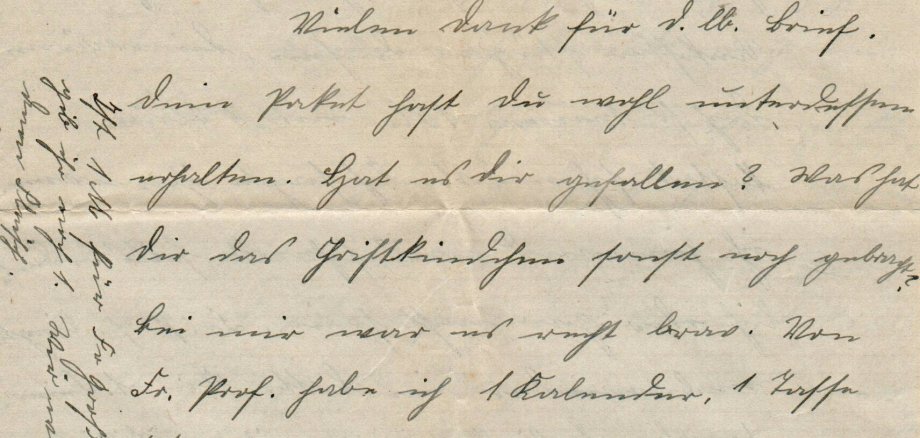 Vielen Dank für d. lb. Brief.
Dein Paket hast Du wohl unterdessen
erhalten. Hat es Dir gefallen? Was hat
Dir das Christkindchen sonst noch gebracht?
Bei mir war es recht brav. Von
Fr. Prof. habe ich 1 Kalender, 1 Tasse
1 M für